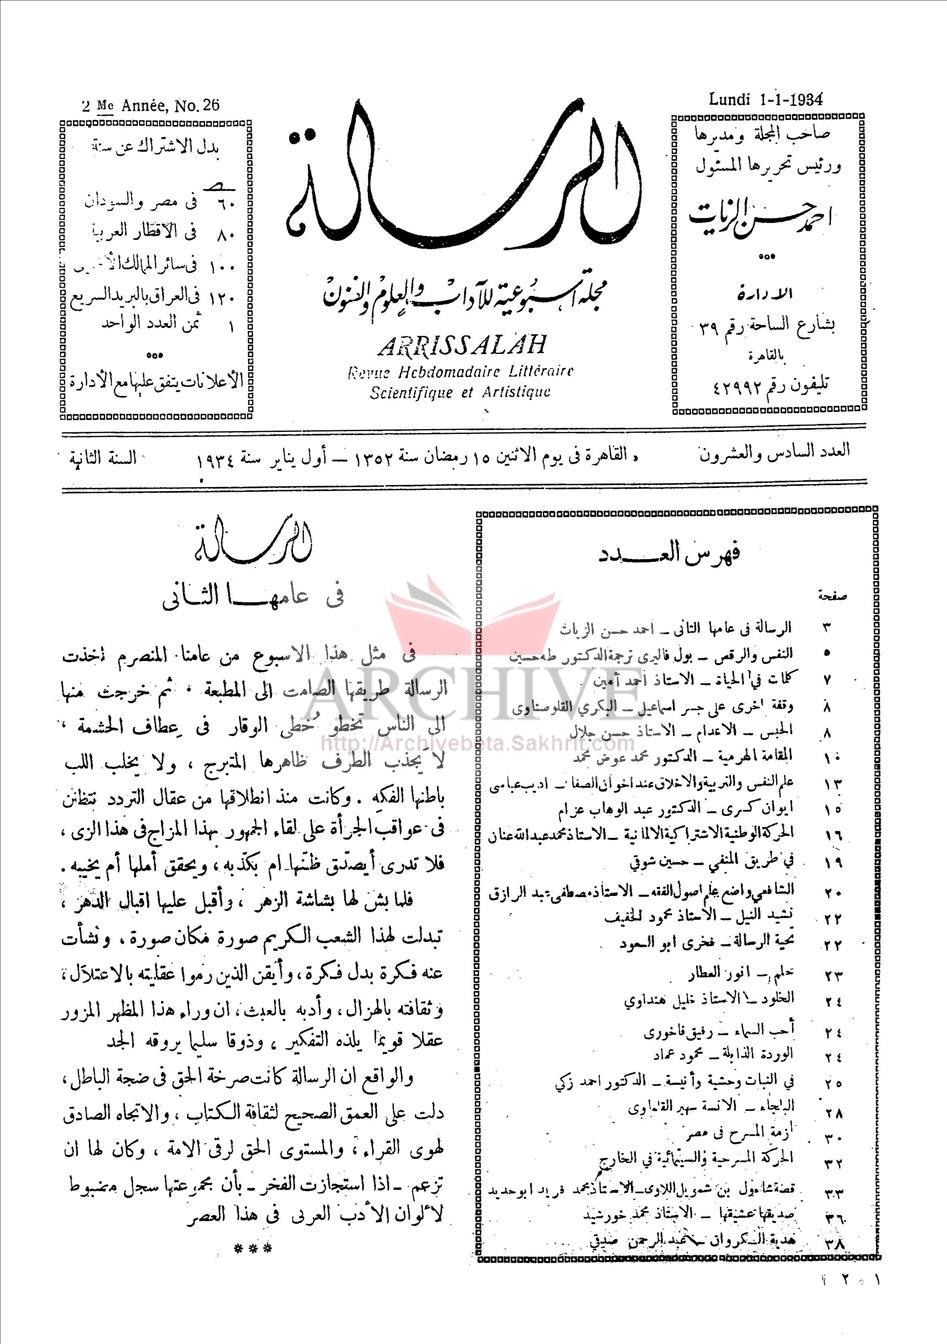 Lundi 1-1-1934
صاحب المجلة ومديرها
ورئيس تحريرها المسئول
احمد حسن الزيات
الادارة
بشارع الساحة رقم ٣٩
بالقاهرة
تليفون رقم ٤٢٩٩٢
الرسالة
مجلة اسبوعية للآداب والعلوم والفنون
ARRISSALAH
Revue Hebdomadaire Littéraire
Scientifique et Artistique
2 Me Année, No. 26
بدل الاشتراك عن سنة
٦٠ فى مصر والسودان
٨٠ فى الاقطار العربية
١٠٠ فى سائر الممالك
١٢٠ فى العراق بالبريد السريع
١ ثمن العدد الواحد
الاعلانات يتفق عليها مع الادارة
العدد السادس والعشرون
القاهرة فى يوم الاثنين ١٥ رمضان سنة ١٣٥٢ — أول يناير سنة ١٩٣٤
السنة الثانية
فهرس العدد
صفحة
٣ الرسالة فى عامها الثانى ـ احمد حسن الزيات
٥ النفس والرقص ـ بول فاليرى ترجمة الدكتور طه حسين
٧ كلمات في الحياة ـ الاستاذ أحمد أمين
٨ وقفة اخرى على جسر اسماعيل ـ البكري القلوصناوى
٨ الحبس ـ الاعدام ـ الاستاذ حسن جلال
١٠ المقامة الهرمية ـ الدكتور محمد عوض محمد
١٣ علم النفس والتربية والاخلاق عند اخوان الصفا ـ اديب عباسى
١٥ ايوان كسرى ـ الدكتور عبد الوهاب عزام
١٦ الحركة الوطنية الاشتراكية الالمانية ـ الاستاذ محمد عبد الله عنان
١٩ في طريق المنفي ـ حسين شوقي
٢٠ الشافعي واضع علم اصول الفقه ـ الاستاذ مصطفى عبد الرازق
٢٢ نشيد النيل ـ الاستاذ محمود الخفيف
٢٢ تحية الرسالة ـ فخرى ابو السعود
٢٣ حلم ـ انور العطار
٢٤ الخلود ـ الاستاذ خليل هنداوي
٢٤ أحب السماء ـ رفيق فاخورى
٢٤ الوردة الذابلة ـ محمود عماد
٢٥ في النبات وحشية وأنيسة ـ الدكتور احمد زكي
٢٨ البلجاء ـ الانسة سهير القلماوى
٣٠ ازمة المسرح فى مصر
٣٢ الحركة المسرحية والسينمائية في الخارج
٣٣ قصة شاءول بن شمويل اللاوى ـ الاستاذ محمد فريد ابو حديد
٣٦ صديقها عشيقها ـ الاستاذ محمد خورشيد
٣٨ هدية الكروان ـ عبد الرحمن صدقي
الرسالة
فى عامها الثانى
فى مثل هذا الاسبوع من عامنا المنصرم أخذت
الرسالة طريقها الصامت الى المطبعة، ثم خرجت منها
الى الناس تخطو خُطى الوقار فى عطاف الحشمة،
لا يجذب الطرف ظاهرها المتبرج، ولا يخلب اللب
باطنها الفكه. وكانت منذ انطلاقها من عقال التردد تتظنن
فى عواقب الجرأة على لقاء الجمهور بهذا المزاج فى هذا الزى،
فلا تدرى أيصدّق ظنها. ام يكذبه، ويحقق أملها أم يخيبه.
فلما بش لها بشاشة الزهر، وأقبل عليها اقبال الدهر،
تبدلت لهذا الشعب الكريم صورة مكان صورة، ونشأت
عنه فكرة بدل فكرة، وأيقن الذين رموا عقليته بالاعتلال،
وثقافته بالهزال، وأدبه بالعبث، ان وراء هذا المظهر المزور
عقلا قويما يلذه التفكير، وذوقا سليما يروقه الجد
والواقع ان الرسالة كانت صرخة الحق فى ضجة الباطل،
دلت على العمق الصحيح لثقافة الكتاب، والاتجاه الصادق
لهوى القراء، والمستوى الحق لرقى الامة، وكان لها ان
تزعم ـ اذا استجازت الفخر ـ بأن مجموعتها سجل مضبوط
لألوان الأدب العربى فى هذا العصر
***
ARCHIVE
http://Archivebeta.Sakhrit.com